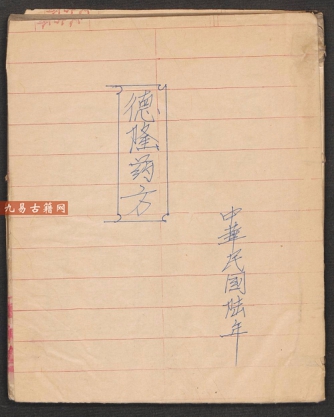 德隆药方
中華民國陆年
九易古籍网